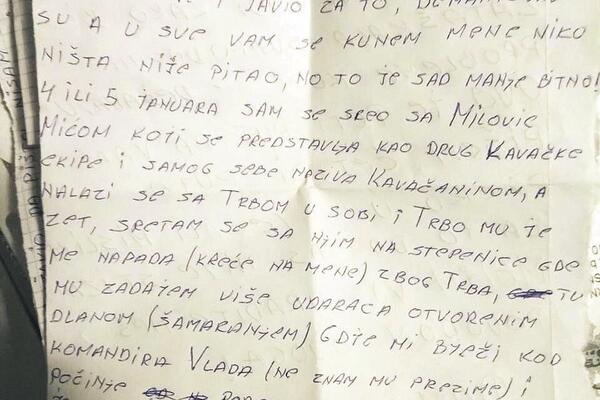 I JAVIO ZA TO,
SU A U SVE VAM SE KUNEM MENE NIKO
NIŠTA NIJE PITAO, NO TO JE SAD MANJE BITNO!
4 ILI 5 JANUARA SAM SE SREO SA MILOVIĆ
MIĆOM KOJI SE PREDSTAVLJA KAO DRUG KAVAČKE
EKIPE I SAMOG SEBE NAZIVA KAVAČANINOM, A
NALAZI SE SA TRBOM U SOBI I TRBO MU JE
ZET, SRETAM SE SA NJIM NA STEPENICE GDE
ME NAPADA (KREĆE NA MENE) ZBOG TRBA, TU
MU ZADAJEM VIŠE UDARACA OTVORENIM
DLANOM (ŠAMARANJEM) GDJE MI BJEŽI KOD
KOMANDIRA VLADA (NE ZNAM MU PREZIME) I
POČINJE